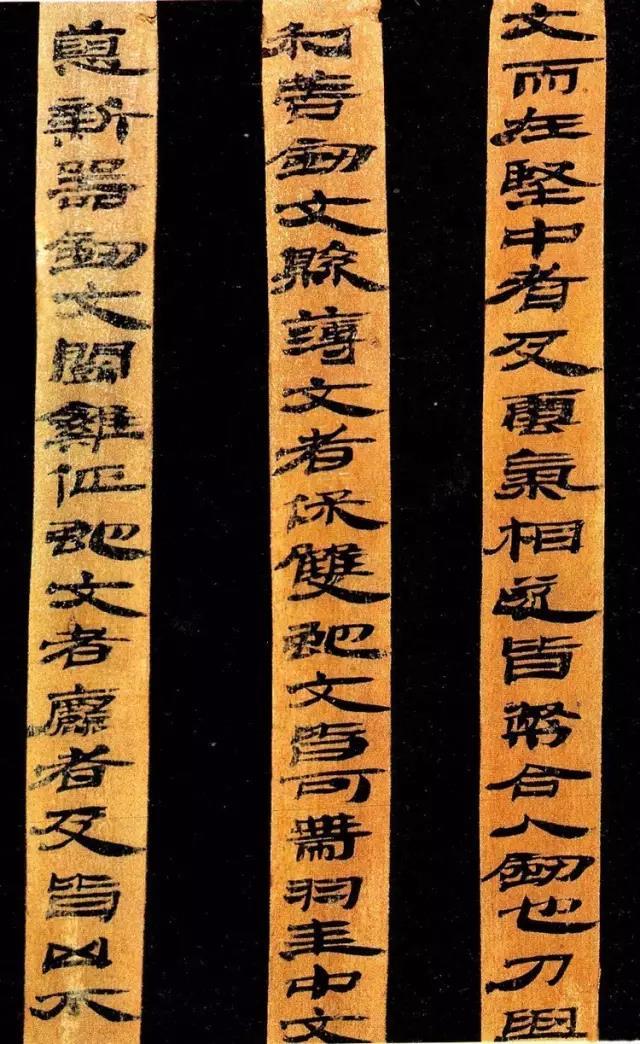 文而在堅中者及雲氣相遂皆幣合人劍也刀與
利善劍文縣薄文者保雙蛇文皆可帶羽圭中文
惡新器劍文鬬雞佂蛇文者麤者及皆凶不